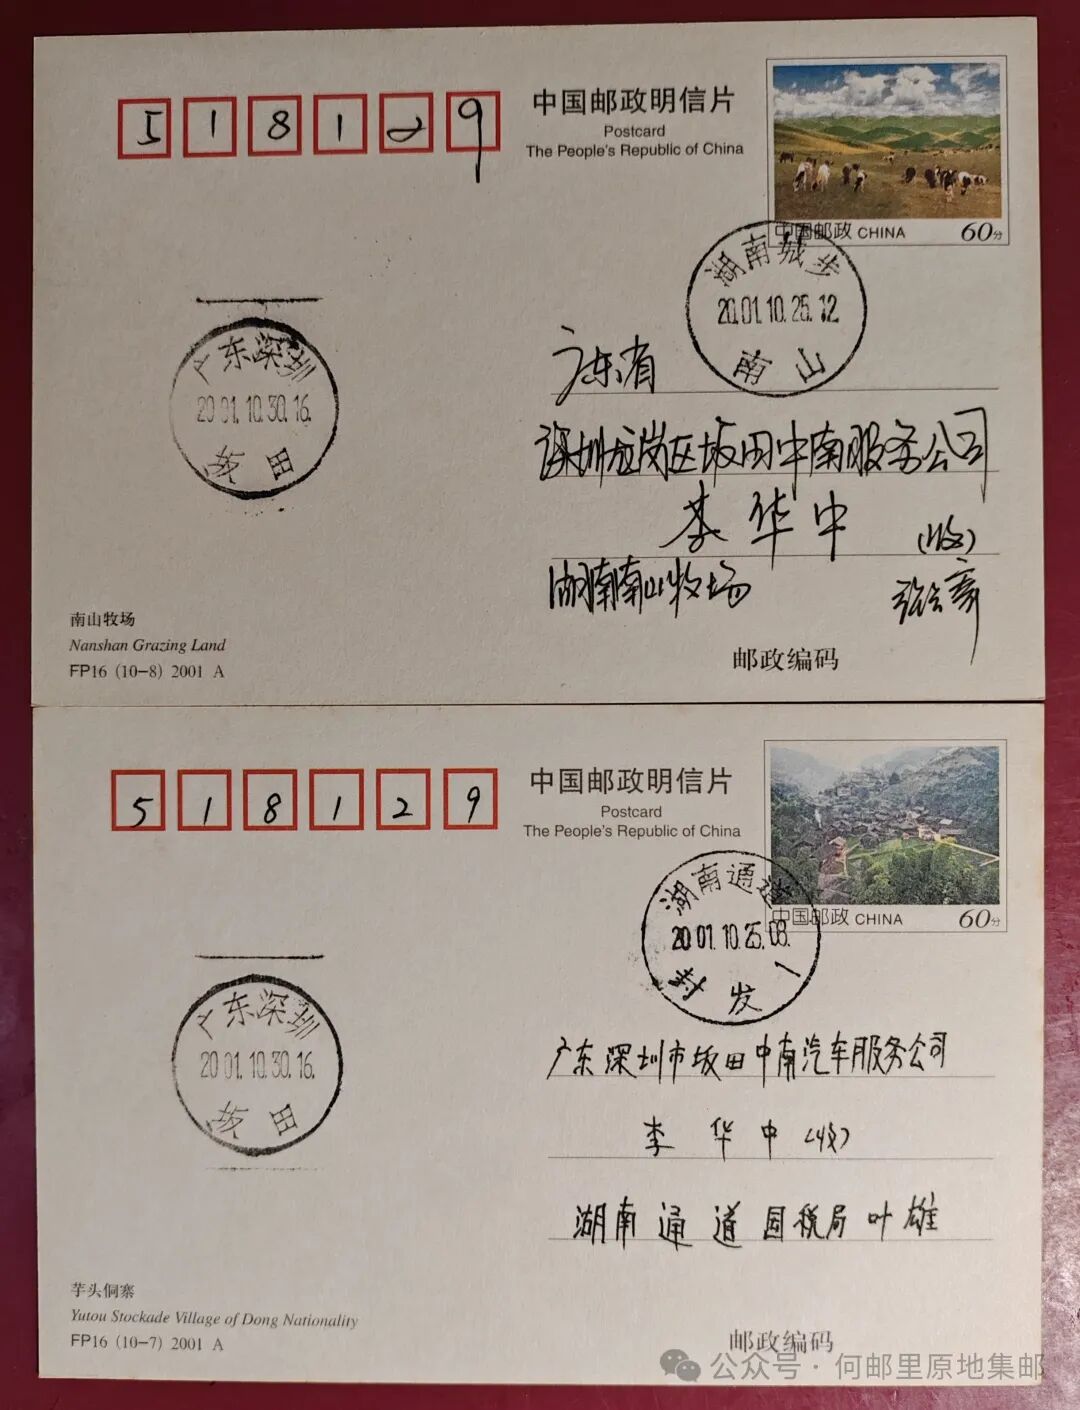 518129
中国邮政明信片
Postcard
The People's Republic of China
中国邮政 CHINA 60分
湖南城步
2001.10.25.12
南山
广东深圳
2001.10.30.16.
坂田
广东省
深圳龙岗区坂田中南服务公司
李华中 (收)
湖南南山牧场
南山牧场
Nanshan Grazing Land
FP16 (10-8) 2001 A
邮政编码
518129
中国邮政明信片
Postcard
The People's Republic of China
中国邮政 CHINA 60分
湖南通道
2001.10.25.08.
发 1
广东深圳
2001.10.30.16.
坂田
广东深圳市坂田中南汽车服务公司
李华中 (收)
湖南通道国税局叶雄
芋头侗寨
Yutou Stockade Village of Dong Nationality
FP16 (10-7) 2001 A
邮政编码
公众号·何邮里原地集邮